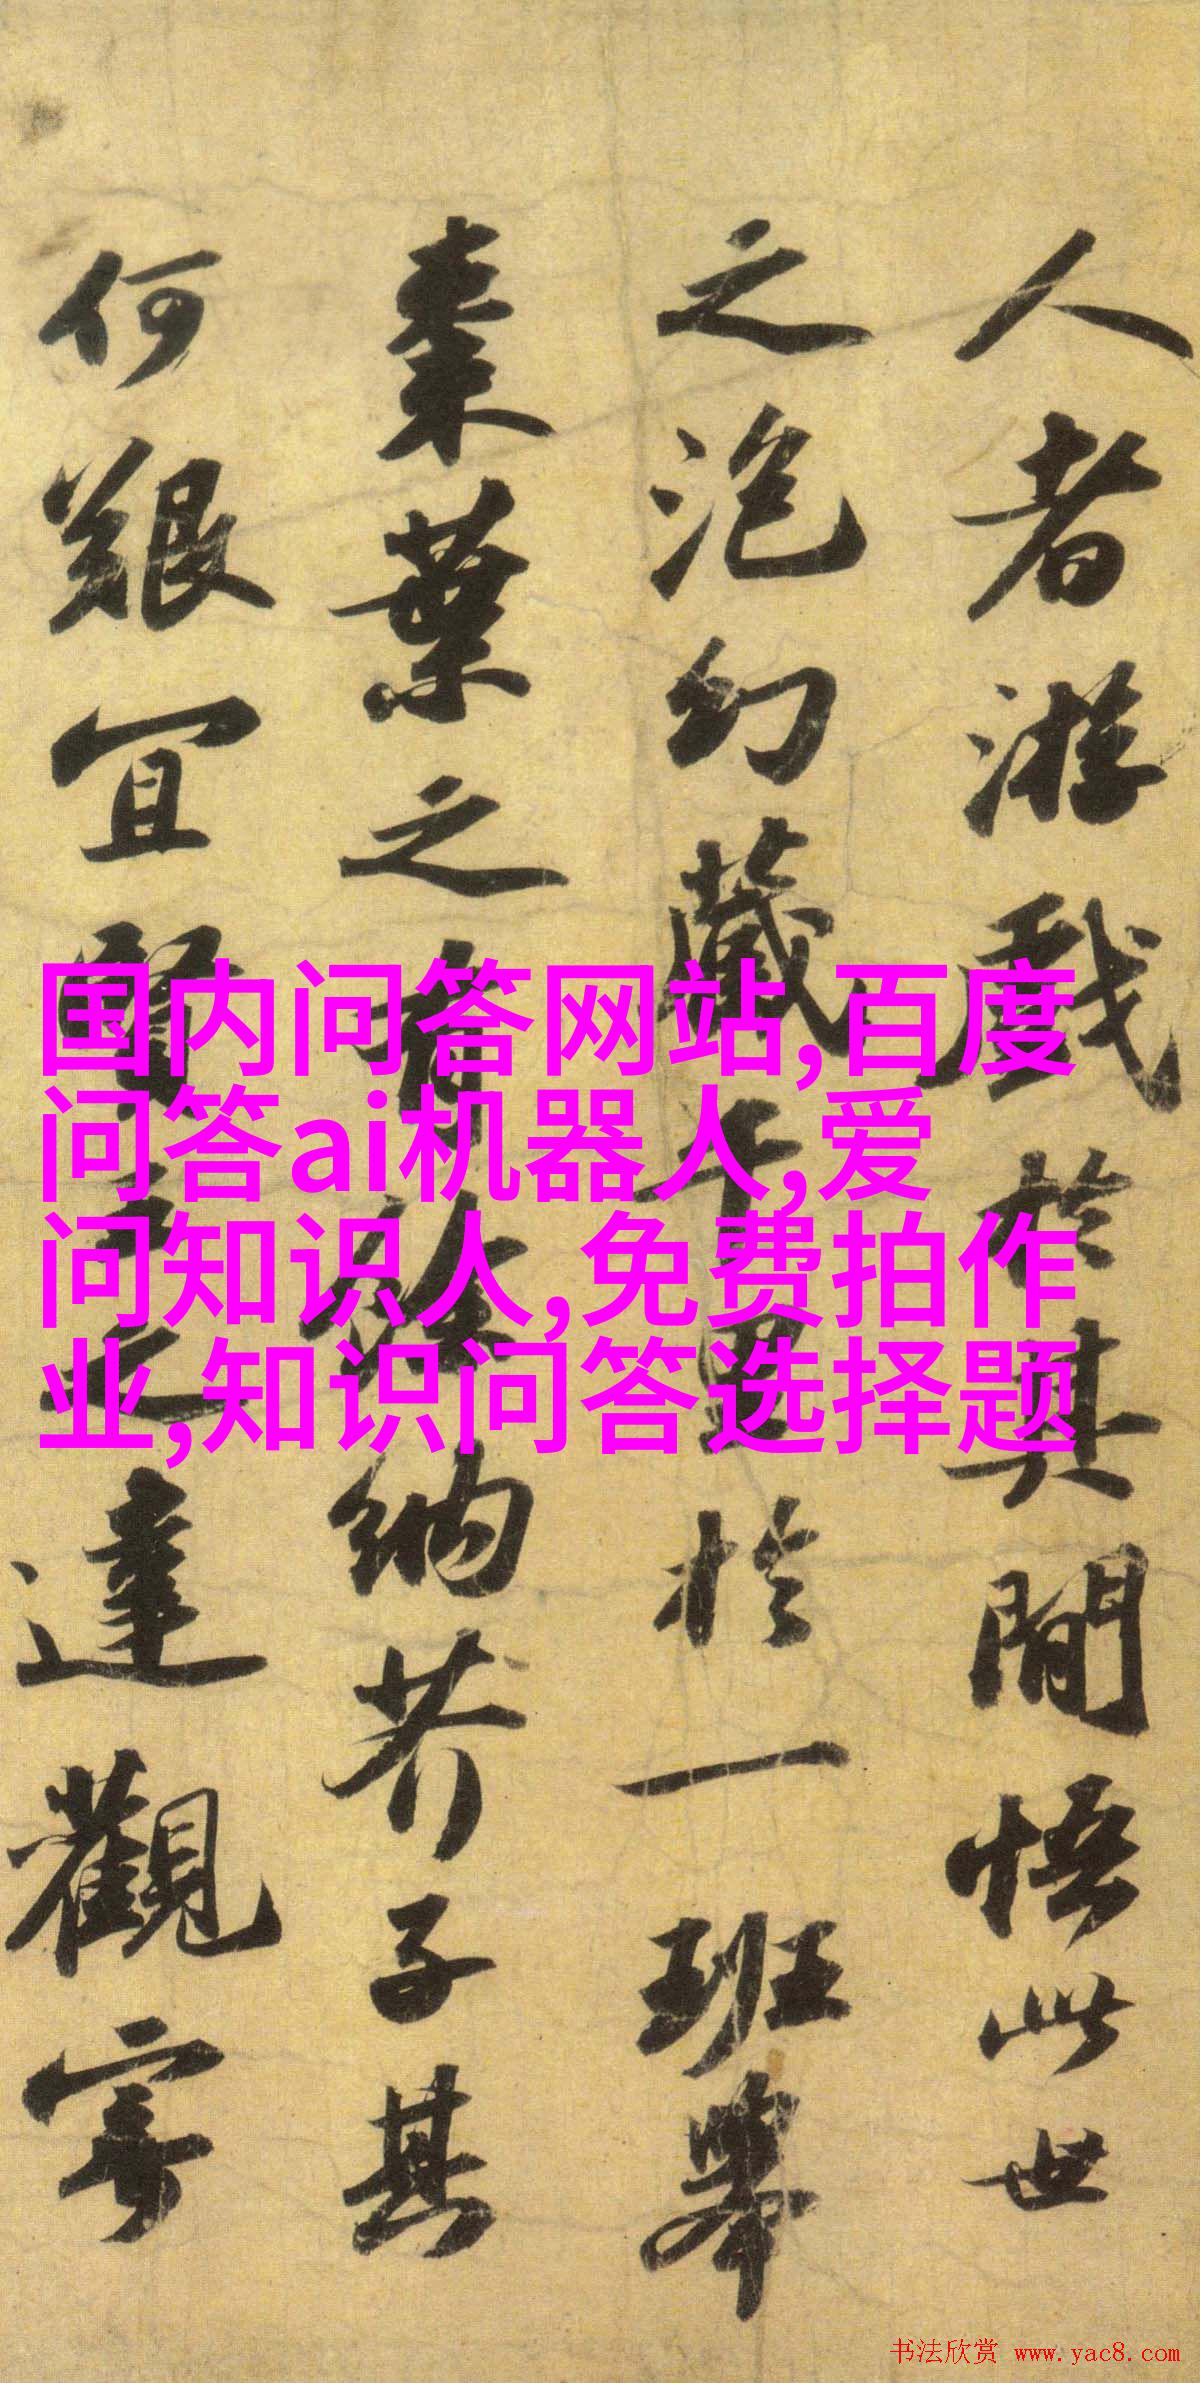 人者游戲於其間悟此世
之泡幻藏千里於一班舉
棗葉之有餘納芥子其
何艱宜賢王之達觀寄
国内问答网站,百度
问答ai机器人,爱
问知识人,免费拍作
业,知识问答选择题
书法欣赏 www.yac8.com